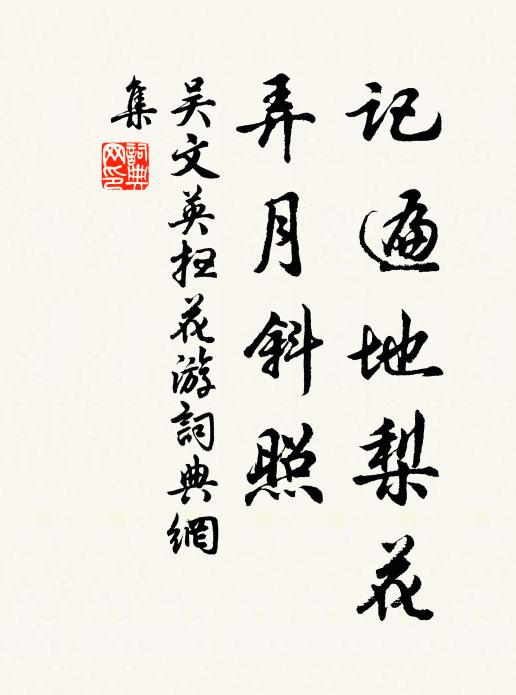 记遍地梨花
弄月斜照
吴文英扫花游詞典網
集
詞典網印